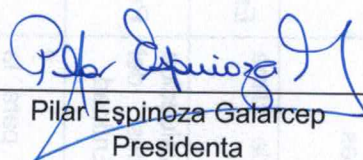 Pilar Espinoza G
Pilar Espinoza Galarcep
Presidenta